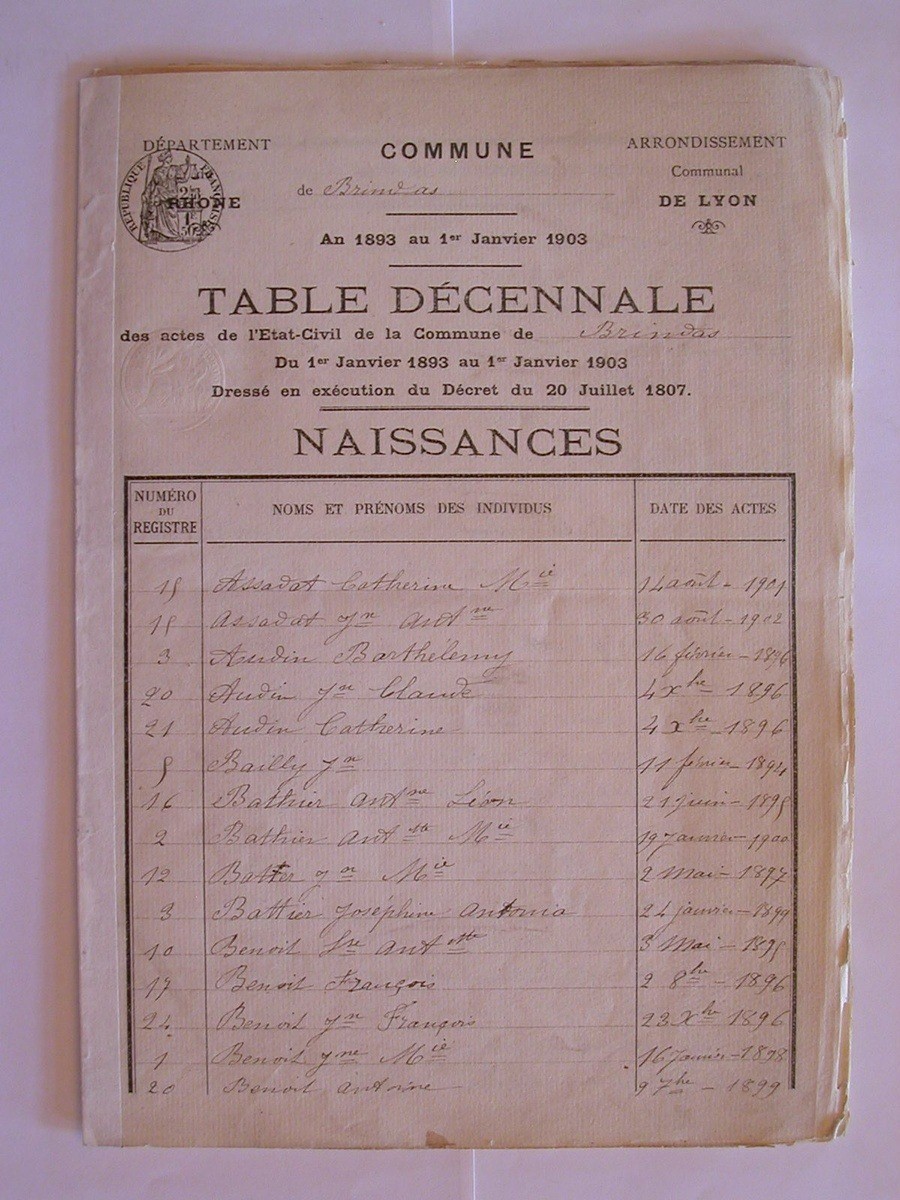 DÉPARTEMENT
RHONE
RÉPUBLIQUE FRANÇAISE
COMMUNE
de Brindas
ARRONDISSEMENT
Communal
DE LYON
An 1893 au 1er Janvier 1903
TABLE DÉCENNALE
des actes de l'Etat-Civil de la Commune de Brindas
Du 1er Janvier 1893 au 1er Janvier 1903
Dressé en exécution du Décret du 20 Juillet 1807.
NAISSANCES
NUMÉRO DU REGISTRE NOMS ET PRÉNOMS DES INDIVIDUS DATE DES ACTES
15 Assadat Catherine Mie 14 août - 1901
15 Assadat Jn Antne 30 août - 1902
3 Audin Barthélemy 16 février - 1896
20 Audin Jn Claude 4 Xbre 1896
21 Audin Catherine 4 Xbre 1896
5 Bailly Jn 11 février - 1894
16 Bathier Antne Léon 21 juin - 1895
2 Bathier Anttte Mie 19 Janvier - 1900
12 Jne Mie 2 Mai - 1897
3 Battier Joséphine Antonia 24 janvier - 1899
10 Benoit Anttte 3 Mai - 1895
17 Benoit François 2 8bre - 1896
24 Benoit Jn François 23 Xbre 1896
1 Benoit Jne Mie 16 Janvier - 1898
20 Benoit Antoine 9 7bre - 1899